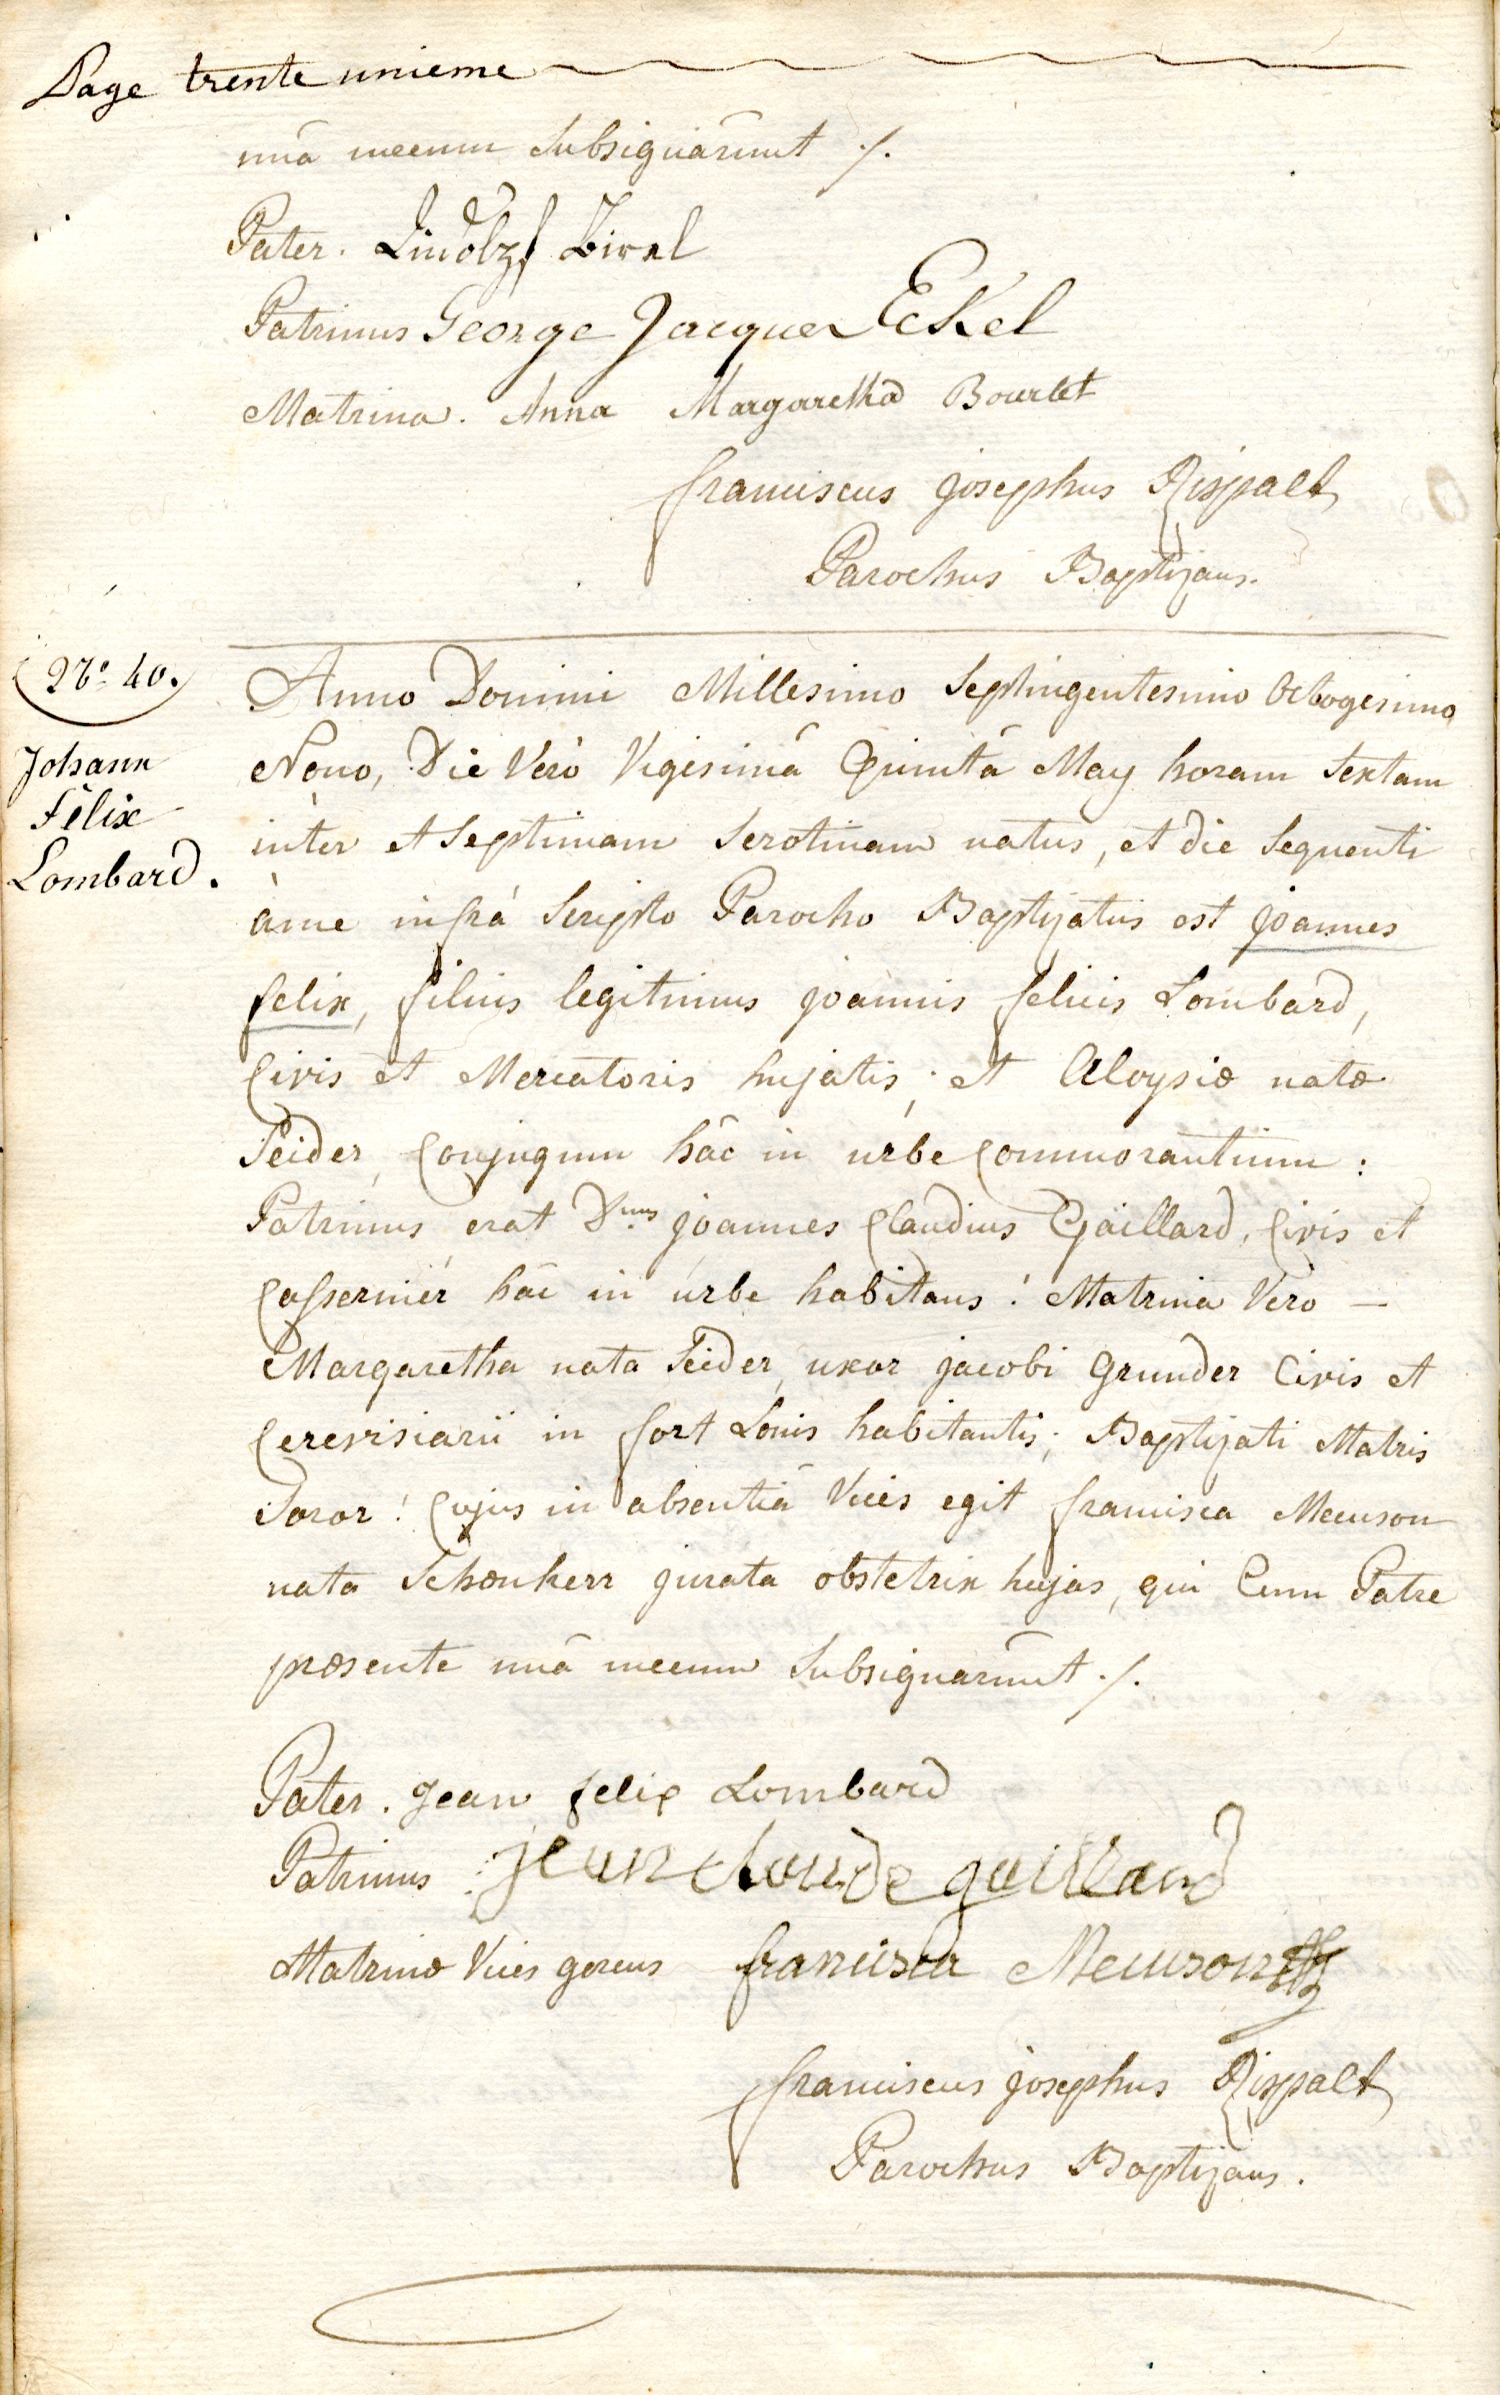 Page trente unieme
unâ mecum Subsignârunt ./.
Pater.
Patrinus George Jacque Eckel
Matrina. Anna Margaretha Bourlet
franciscus josephus Rispalt
Parochus Baptizans.
No. 40.
Johann
Félix
Lombard.
Anno Domini Millesimo Septingentesimo Octogesimo
Nono, Die Verò Vigesimâ Quintâ May horam Sextam
inter et Septimam Serotinam natus, et die Sequenti
àme infrá Scripto Parocho Baptizatus est joannes
felix, filius legitimus joannis felicis Lombard,
Civis et Mercatoris hujatis; et Aloysiæ natæ
Seider, Conjugum hâc in urbe Commorantium:
Patrinus erat Dnus joannes Claudius Gaillard, Civis et
Cassernier hâc in urbe habitans: Matrina Vero —
Margaretha nata Seider, uxor jacobi Grunder Civis et
Cerevisiarii in fort Louis habitantis; Baptizati Matris
Soror: Cujus in absentiâ Vices egit francisca Meuson
nata Schœnherr jurata obstetrix hujas, qui Cum Patre
præsente unâ mecum Subsignarûnt ./.
Pater. Jean felix Lombard
Patrinus : jean cloude gaillard
Matrinæ Vices gerens francisca Meuson
franciscus josephus Rispalt
Parochus Baptizans.